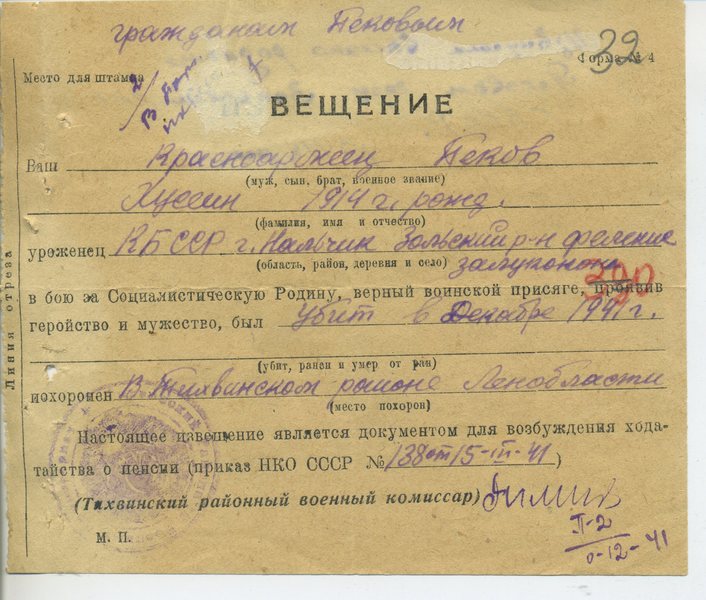 гражданам Пековым
32
Форма № 4
Место для штампа
ВЕЩЕНИЕ
Ваш Красноармеец Пеков
(муж, сын, брат, военное звание)
Хусеин 1914 г. рожд.
(фамилия, имя и отчество)
уроженец КБССР г. Нальчик Зольский р-н
(область, район, деревня и село)
в бою за Социалистическую Родину, верный воинской присяге, проявив
геройство и мужество, был убит в Декабре 1941 г.
(убит, ранен и умер от ран)
похоронен В Тихвинском районе Ленобласти
(место похорон)
Настоящее извещение является документом для возбуждения хода-
тайства о пенсии (приказ НКО СССР № 138 от 15-III-41)
(Тихвинский районный военный комиссар)
М. П.
П-2
0-12-41
Линия отреза